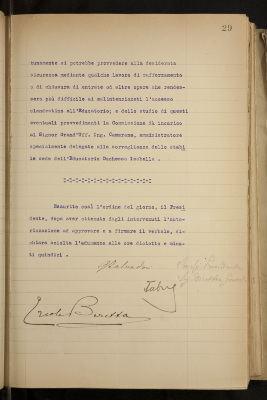 29
tunamente si potrebbe provvedere alla desiderata
sicurezza mediante qualche lavoro di rafforzamento
o di chiusura di entrate od altre opere che rendes-
sero più difficile ai malintenzionati l'accesso
clandestino all'Educatorio; e dello studio di questi
eventuali provvedimenti la Commissione dà incarico
al Signor Grand'Uff. Ing. Camerana, amministratore
specialmente delegato alla sorveglianza dello stabi
le sede dell'Educatorio Duchessa Isabella.
Esaurito così l'ordine del giorno, il Presi
dente, dopo aver ottenuto dagli intervenuti l'auto-
rizzazione ad approvare e a firmare il verbale, di-
chiara sciolta l'adunanza alle ore diciotto e minu-
ti quindici.
Ercole Beretta